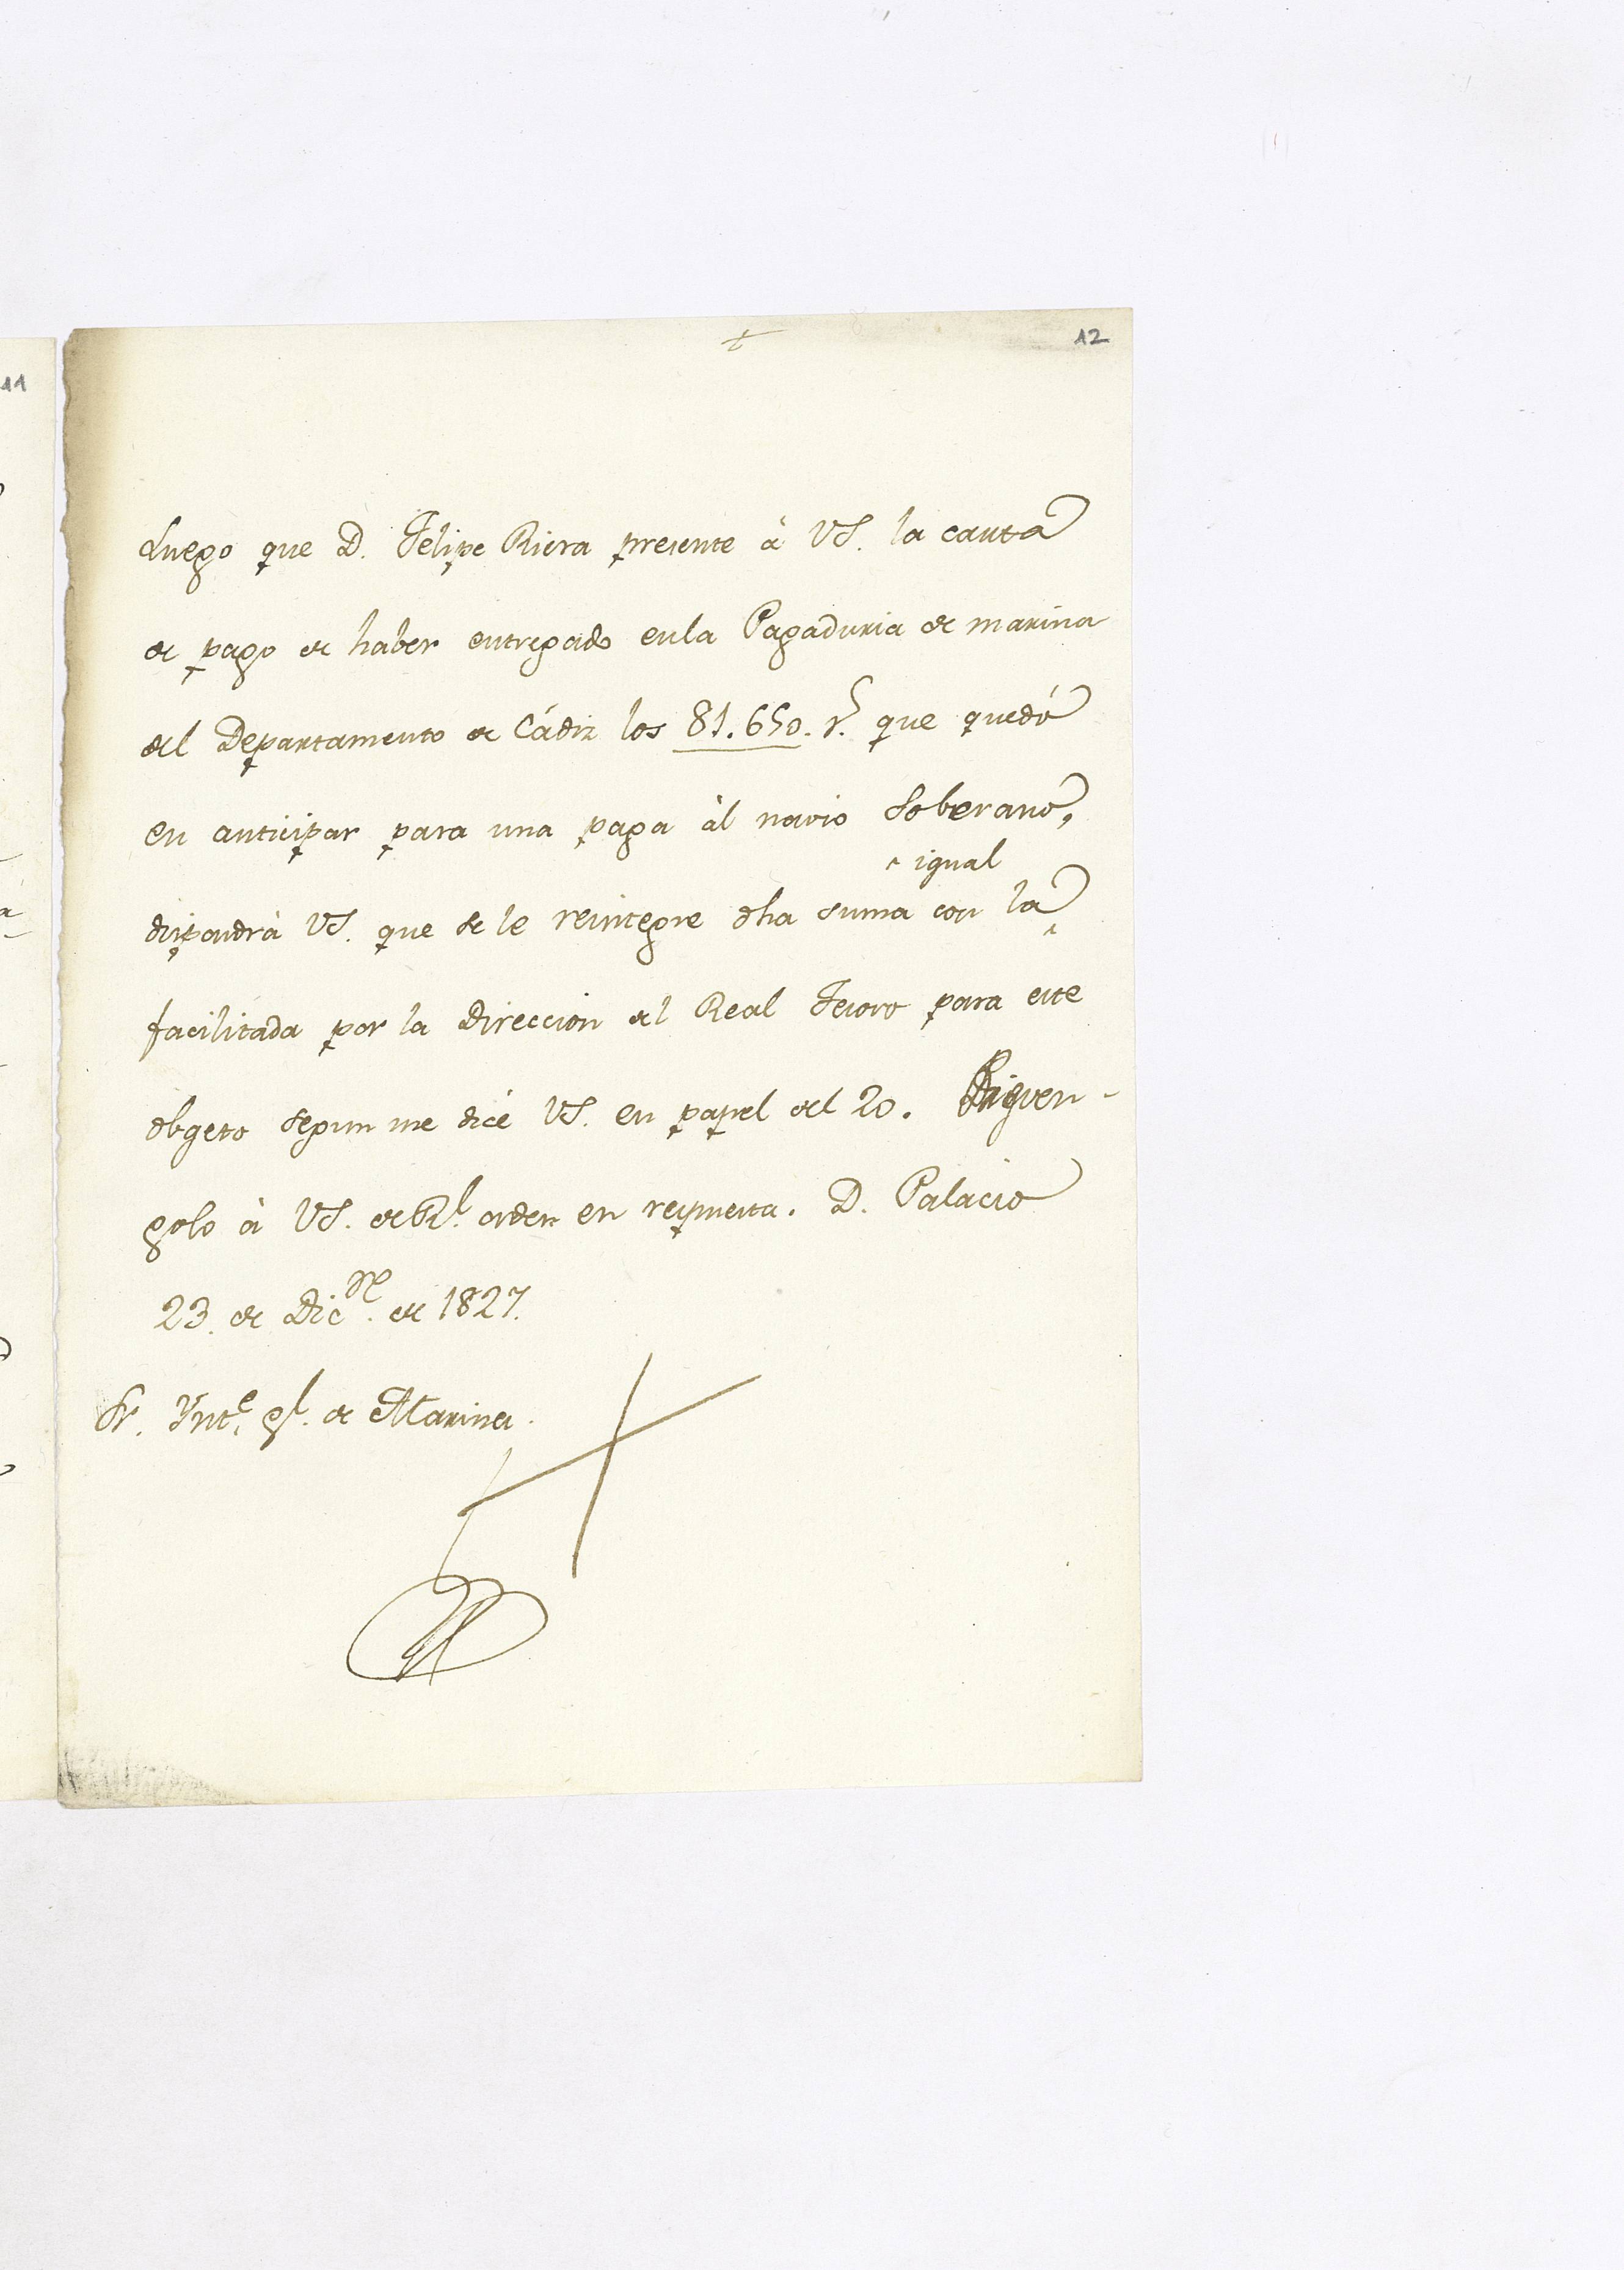 12
11
Luego que D. Felipe Riera presente à VS. la carta
de pago de haber entregado enla Pagaduria de marina
del Departamento de Cádiz los 81.650. rˢ. que quedó
en anticipar para una paga àl navio Soberano,
^ igual
dispondrà VS. que se le reintegre dha suma con la ^
facilitada por la direccion del Real Tesoro para este
obgeto segun me dice VS. en papel del 20. Diguen-
golo à VS. de Rˡ. orden en respuesta. D. Palacio
23. de Dicʳᵉ. de 1827.
Sr. Yntᵉ. gˡ. de Marina.